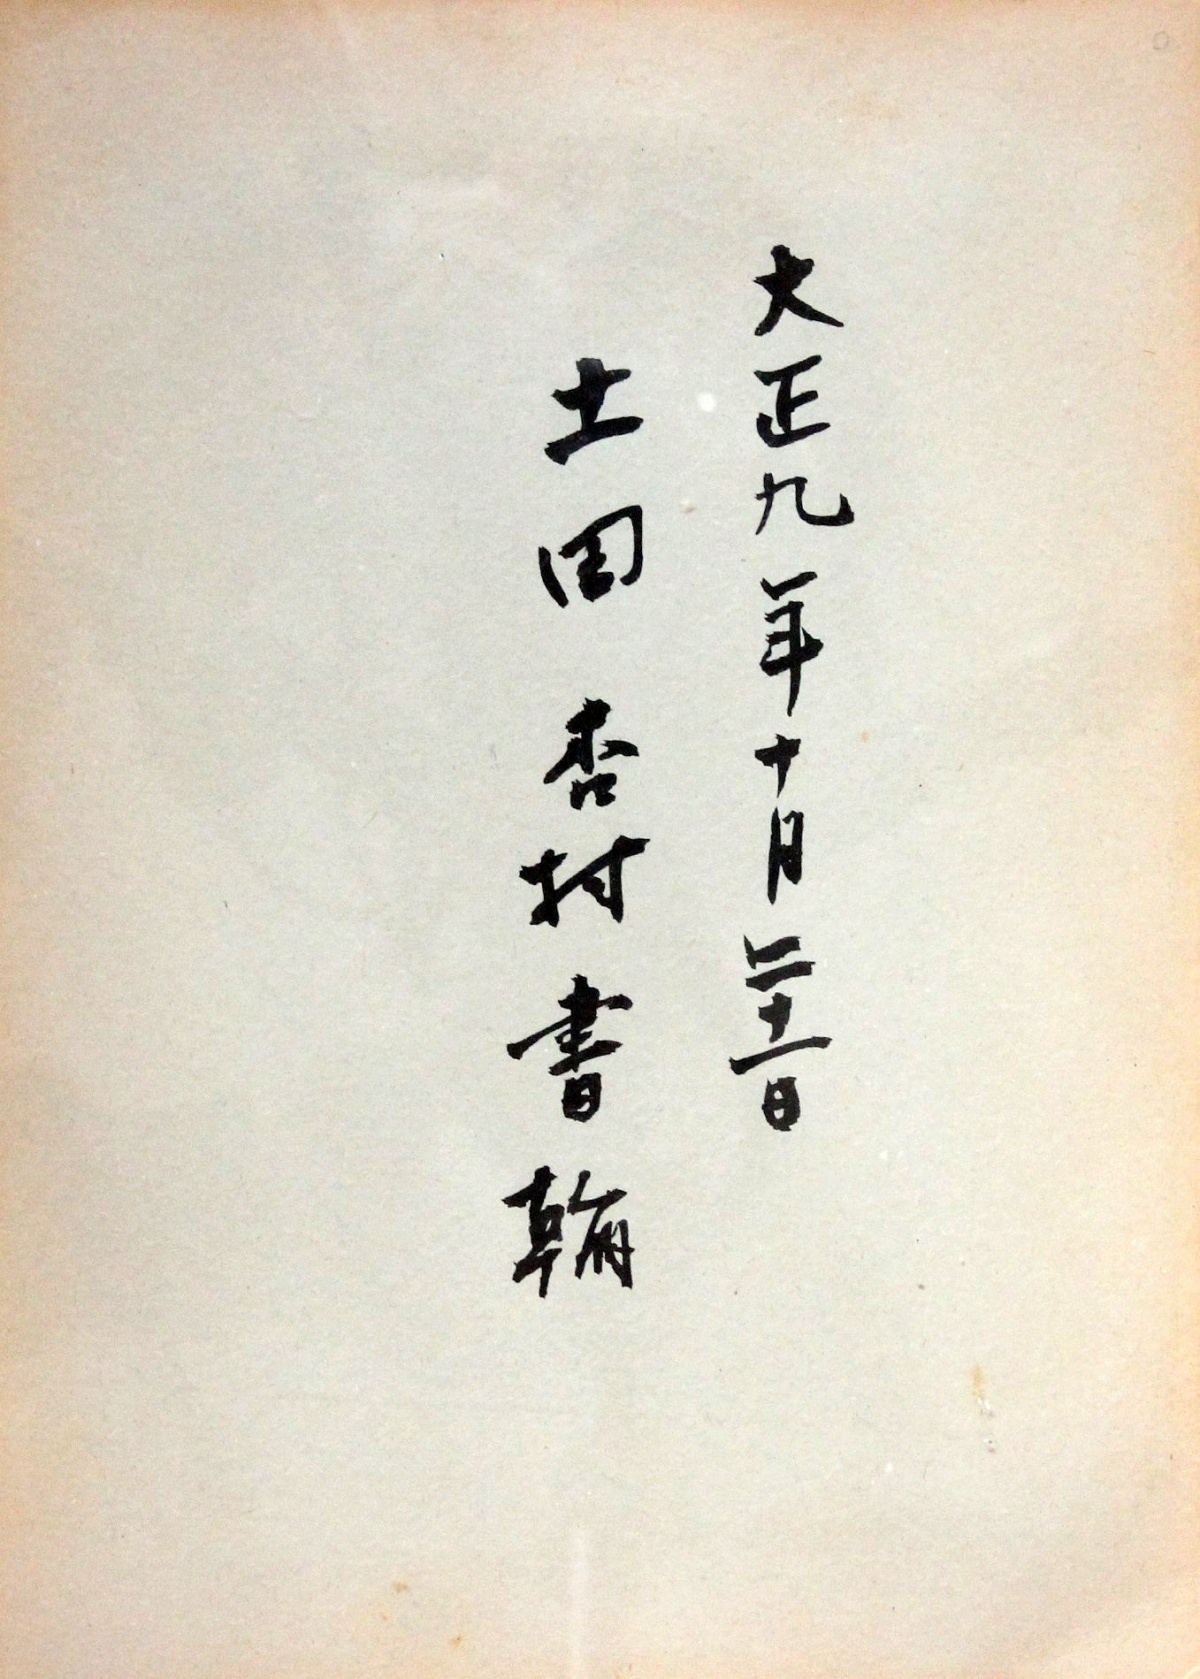 大正九年十月二十一日
土田杏村書翰